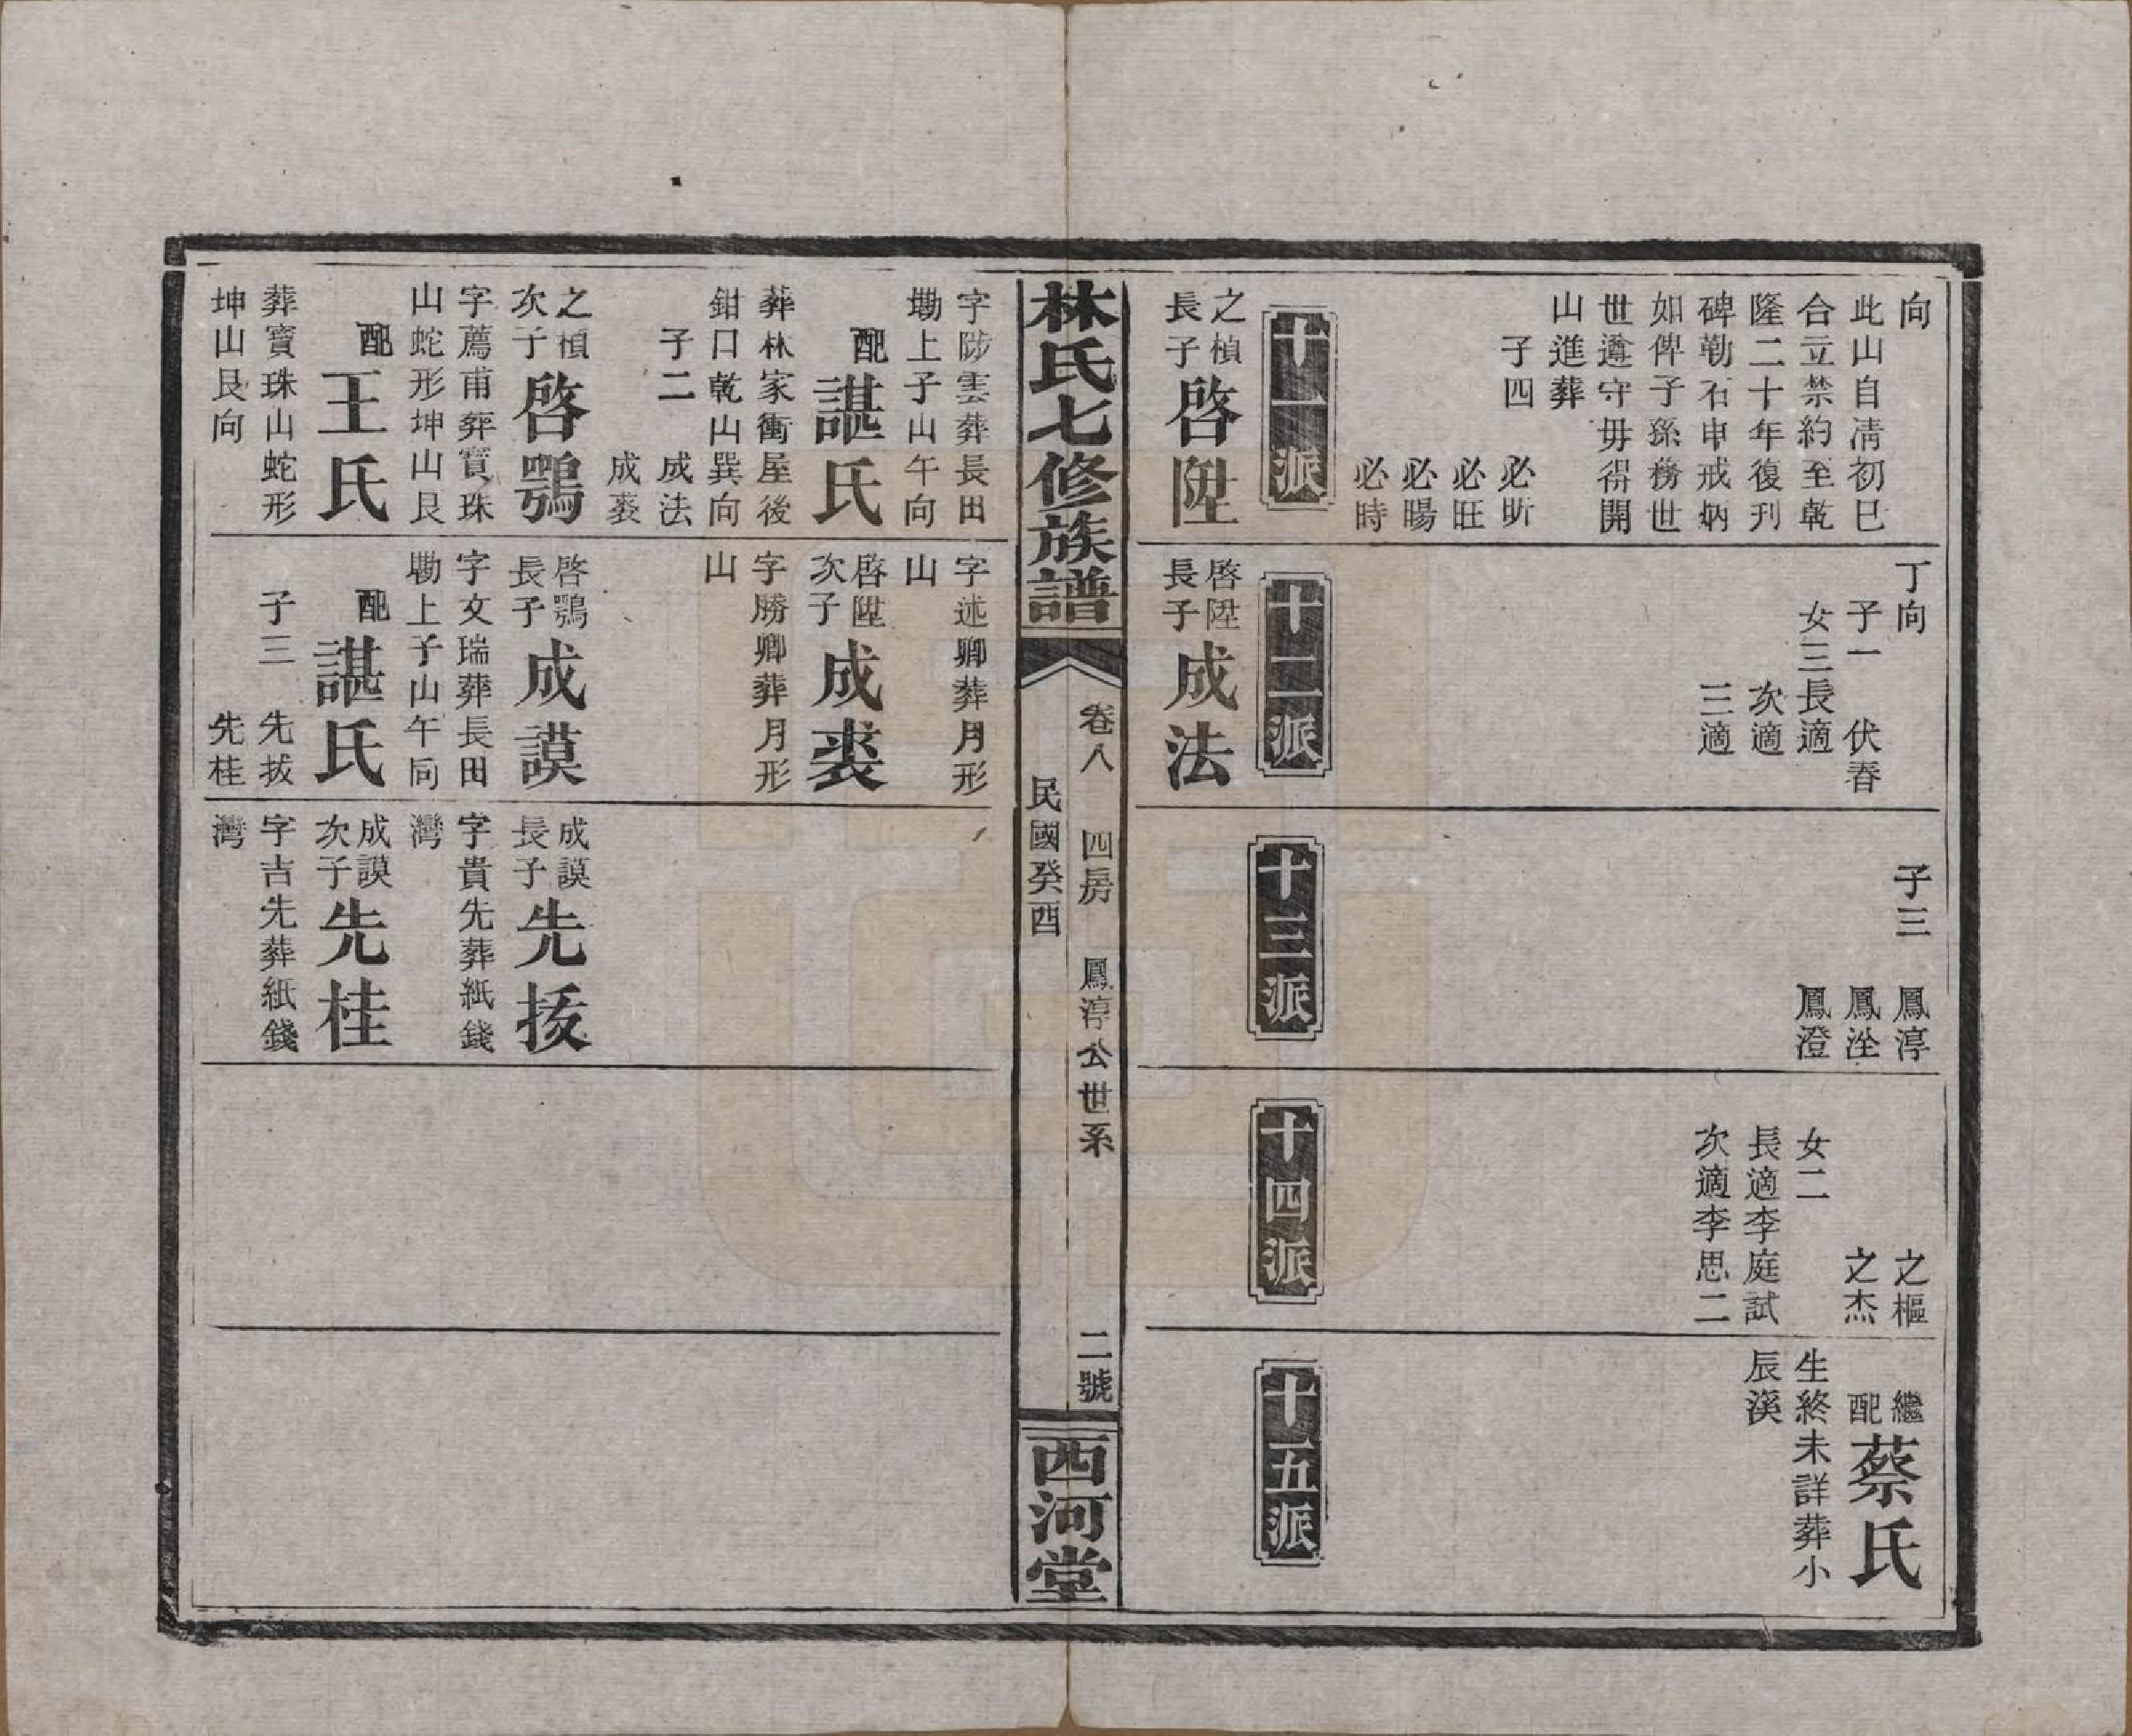 向
此山自清初巳
合立禁約至乾
隆二十年復刊
碑勒石申戒炳
如俾子孫務世
世遵守毋得開
山進葬
子四　必昕
必旺
必暘
必時
十一派
之楨
長子
啓陞
丁向
子一　伏春
女三長適
次適
三適
十二派
啓陞
長子
成法
子三　鳳淳
鳳洤
鳳澄
十三派
之樞
之杰
女二
長適李庭試
次適李思二
十四派
繼
配
蔡氏
生終未詳葬小
辰溪
十五派
林氏七修族譜
卷八　四房　鳳淳公世系　二號
民國癸酉
西河堂
字陟雲葬長田
墈上子山午向
配諶氏
葬林家衝屋後
鉗口乾山巽向
子二　成法
成裘
之楨
次子
啓鶚
字薦甫葬寶珠
山蛇形坤山艮
配王氏
葬寶珠山蛇形
坤山艮向
字述卿葬月形
山
啓陞
次子
成裘
字勝卿葬月形
山
啓鶚
長子
成謨
字文瑞葬長田
墈上子山午向
配諶氏
子三　先拔
先桂
成謨
長子
先拔
字貴先葬紙錢
灣
成謨
次子
先桂
字吉先葬紙錢
灣